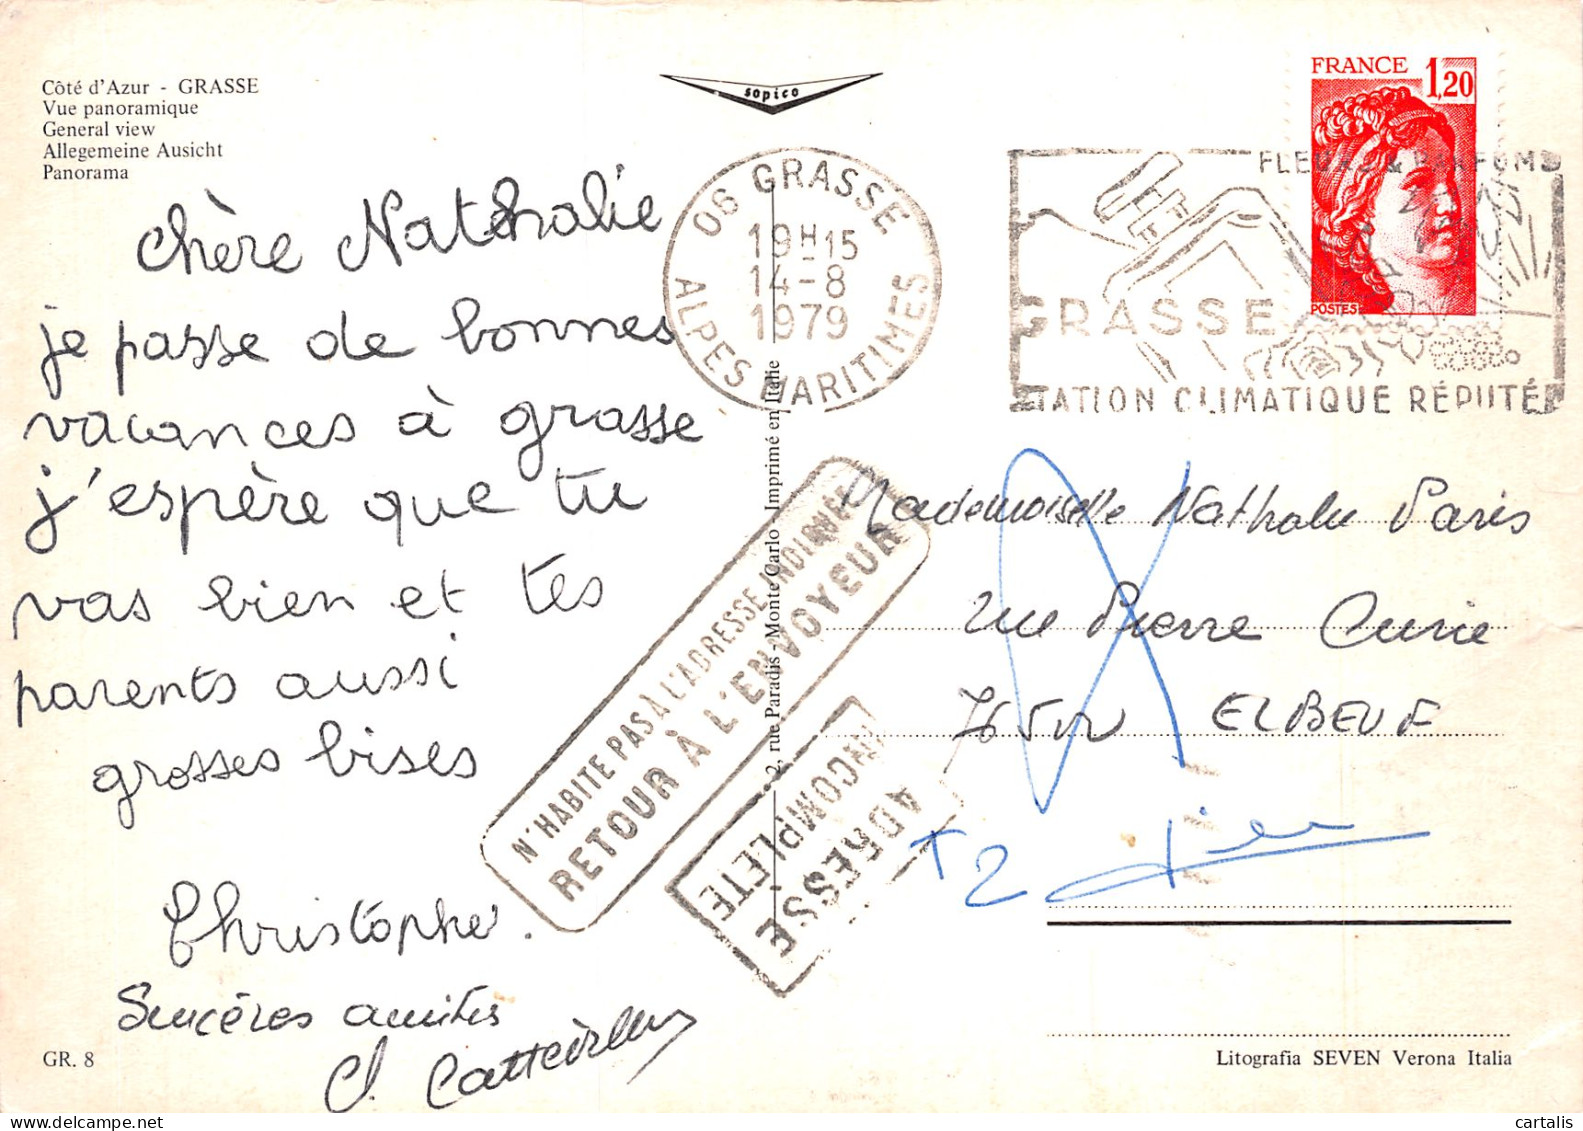 Côté d'Azur - GRASSE
Vue panoramique
General view
Allegemeine Ausicht
Panorama
sopico
FRANCE 1,20
POSTES
06 GRASSE
19H15
14-8
1979
ALPES MARITIMES
FLEURS & PARFUMS
GRASSE
STATION CLIMATIQUE RÉPUTÉE
chère Nathalie
je passe de bonnes
vacances à grasse
j'espère que tu
vas bien et tes
parents aussi
grosses bises
Christophe.
Sincères amitiés
2, rue Paradis - Monte Carlo - Imprimé en Italie
N'HABITE PAS À L'ADRESSE INDIQUÉE
RETOUR À L'ENVOYEUR
ADRESSE
INCOMPLÈTE
Mademoiselle Nathalie Paris
rue Pierre Curie
76500 ELBEUF
T2
GR. 8
Litografia SEVEN Verona Italia
cartalis